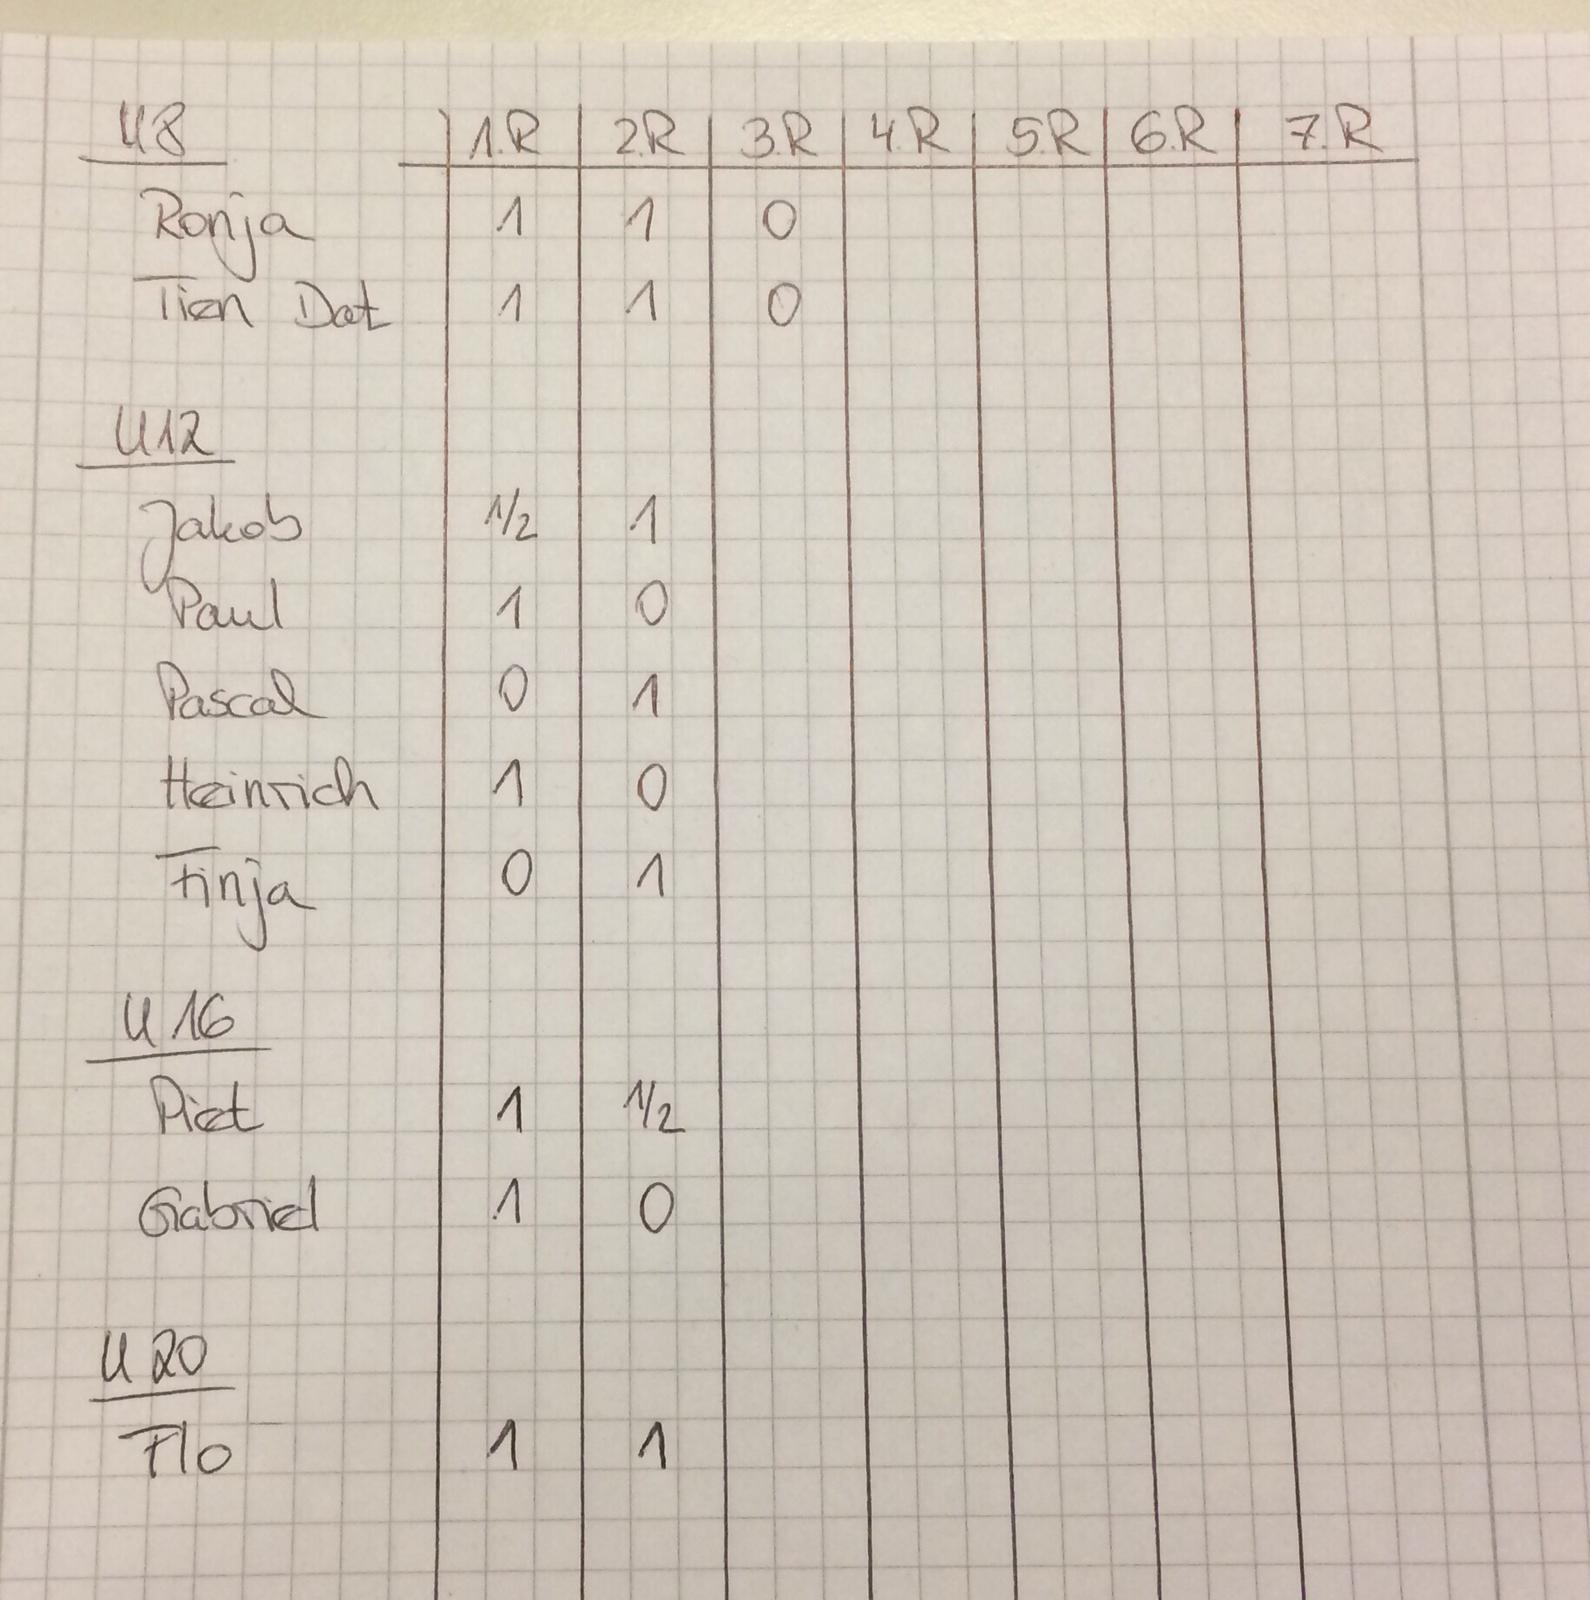 U8 1.R 2.R 3.R 4.R 5.R 6.R 7.R
Ronja 1 1 0
Tien Dat 1 1 0
U12
Jakob 1/2 1
Paul 1 0
Pascal 0 1
Heinrich 1 0
Finja 0 1
U16
Piet 1 1/2
Gabriel 1 0
U20
Flo 1 1